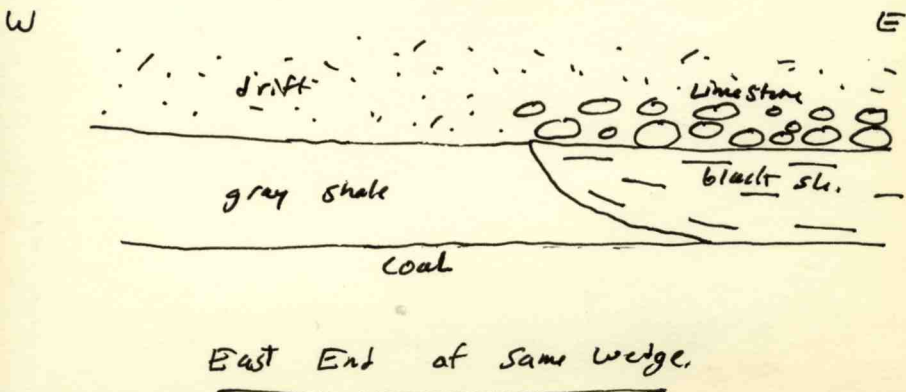 W E
drift Limestone
gray shale black sh.
coal
East End of same wedge.